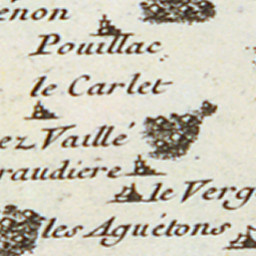 énon
Pouillac
le Carlet
ez Vaillé
raudiere
le Verg
les Aguétons